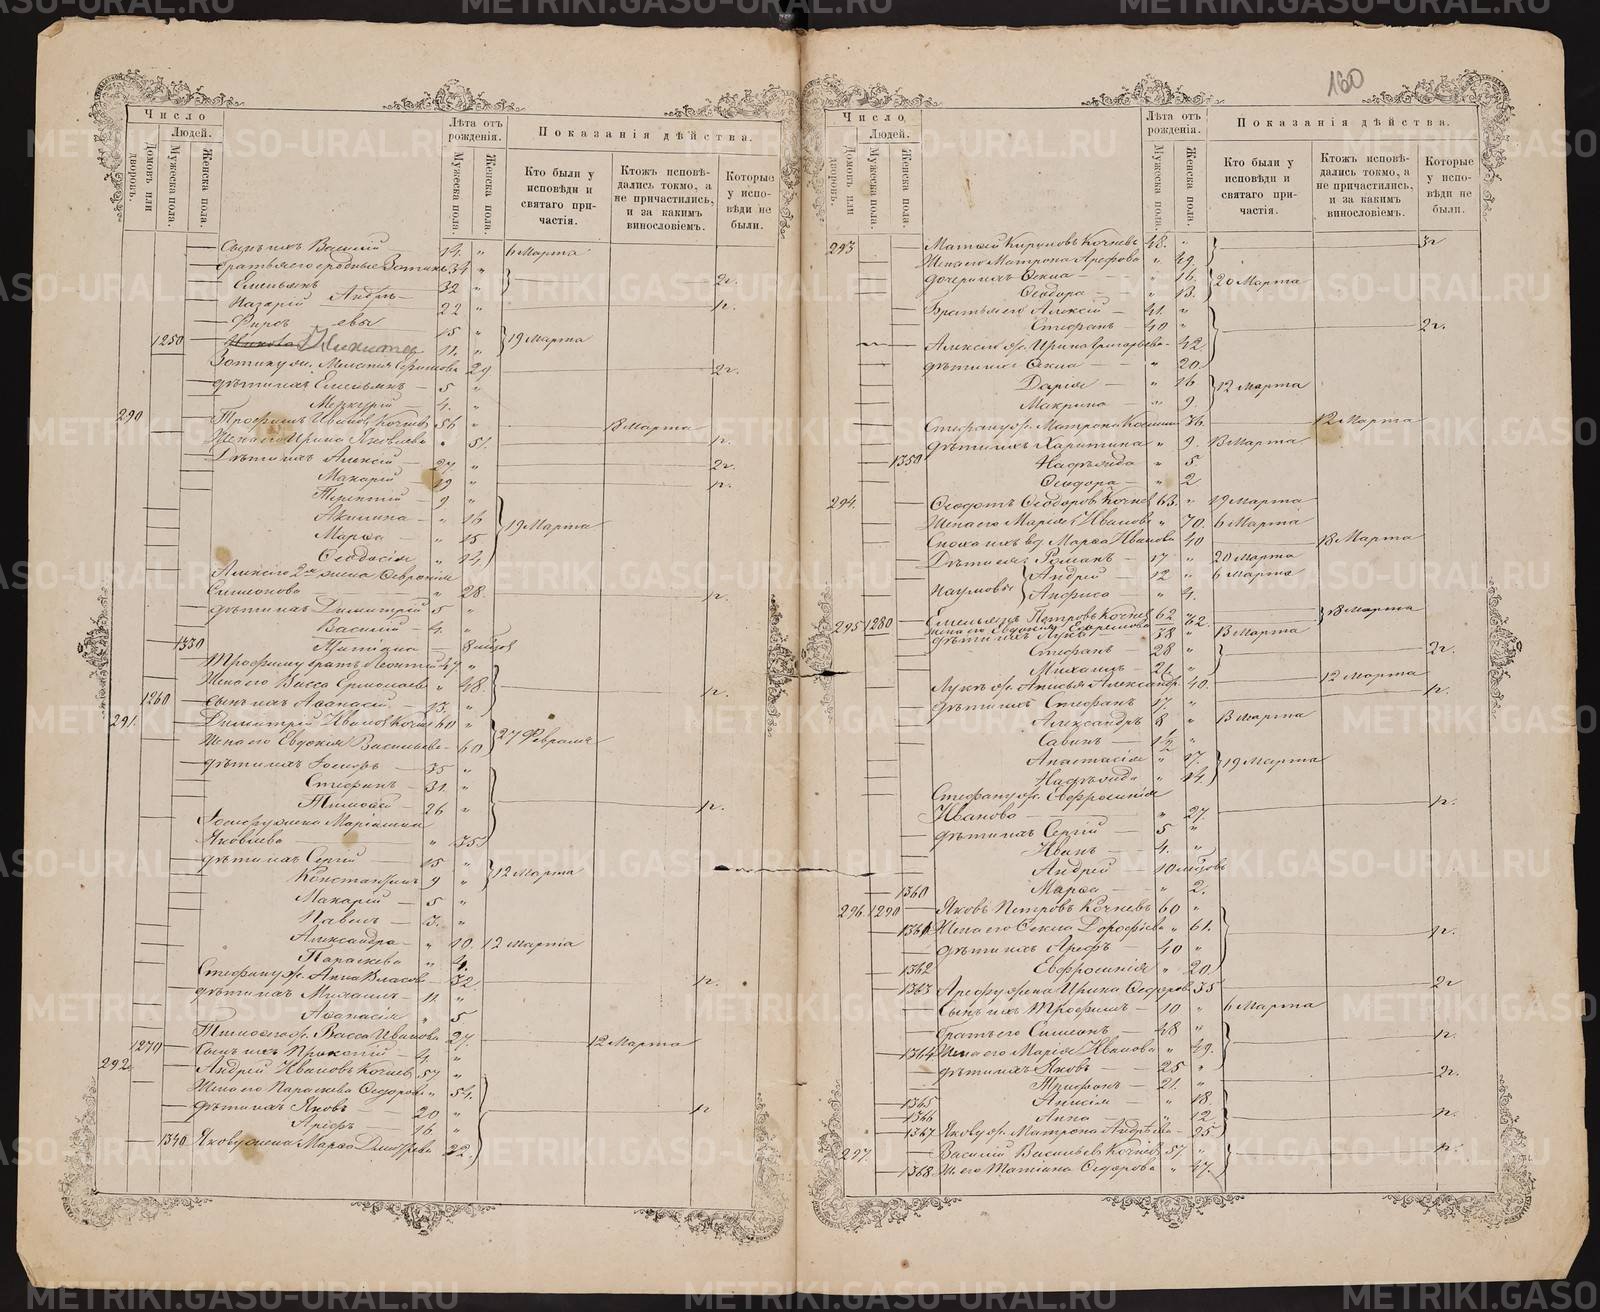 160
Число
Людей.
Домовъ или дворовъ.
Мужеска пола.
Женска пола.
Лѣта отъ рожденія.
Мужеска пола.
Женска пола.
Показанія дѣйства.
Кто были у исповѣди и святаго причастія.
Ктожъ исповѣдались токмо, а не причастились, и за какимъ винословіемъ.
Которые у исповѣди не были.
Сынъ ихъ Василій 14. " 6 Марта
Братья его сродные Зотикъ 34 "
Емельянъ 32 " 2г.
Назарій 22 "
Фирсъ 15 "
1250 Никита 11. " 19 Марта
29 2г.
дѣти ихъ Емельянъ — 5 "
Меркурій — 4. "
290 Трофимъ Ивановъ Кочневъ 56 "
Жена его Ирина Яковлева " 51.
Дѣти ихъ Алексій — 27 " 2г.
Макарій — 19 "
Терентій — 9 "
Акилина — " 16 19 Марта
Марѳа — " 15
Ѳеодосія " 14
Алексія жена Февронія
Симеонова " 28.
дѣти ихъ Димитрій 5 "
Василій — 4. "
1330
Трофиму братъ Леонтій 47 "
Жена его Васса Ермолаева " 48.
1260 Сынъ ихъ Аѳанасій — 13. "
291. Димитрій Ивановъ Кочневъ 60 "
Жена его Евдокія Васильева — 60 27 Февраля
дѣти ихъ Іосифъ — 35 "
Стефанъ — 31. "
Тимоѳей — 26 "
Іосифу жена Маріамна
Яковлева " 35
дѣти ихъ Сергій — 15 "
Константинъ 9 " 12 Марта
Макарій — 5 "
Павелъ — 3. "
Александра — " 10. 12 Марта
Параскева " 4.
Стефану ж. Анна Власова 32
дѣти ихъ Михаилъ — 11. "
Аѳанасія " 5
Тимоѳею ж. Васса Иванова 27. 12 Марта
1270 Сынъ ихъ Прокопій — 4. "
292. Андрей Ивановъ Кочневъ 57 "
Жена его Параскева Ѳедорова " 54.
дѣти ихъ Яковъ — 20 "
Арефъ — 16 "
1340 Якову жена Марѳа Димитріева 22.
Число
Людей.
Домовъ или дворовъ.
Мужеска пола.
Женска пола.
Лѣта отъ рожденія.
Мужеска пола.
Женска пола.
Показанія дѣйства.
Кто были у исповѣди и святаго причастія.
Ктожъ исповѣдались токмо, а не причастились, и за какимъ винословіемъ.
Которые у исповѣди не были.
293 Матѳей Кириловъ Кочневъ 48. " 3г
Жена его Матрона Арефова " 49.
дочери ихъ Ѳекла — " 16. 20 Марта
Ѳеодора — " 13.
Братья его Алексій — 41. "
Стефанъ — 40 " 2г.
Алексію ж. Ирина Григорьева — 42
дѣти ихъ Ѳекла — " 20
Дарія — " 16 12 Марта
Макрина — " 9.
Стефану ж. Матрона 36. 12 Марта
дѣти ихъ Харитина " 9. 13 Марта
1350 Надежда " 5.
Ѳеодора — " 2
294. Ѳеодотъ Ѳеодоровъ Кочневъ 63. " 19 Марта
Жена его Марія Иванова " 70. 6 Марта
Сноха ихъ вд. Марѳа Иванова 40 18 Марта
Дѣти ея: Романъ — 17 " 20 Марта
Андрей — 12 " 6 Марта
Наумовы Анфиса — " 4.
295 1280 Емельянъ Петровъ Кочневъ 62 " 18 Марта
Жена его Евдокія Ефремова " 62.
дѣти ихъ Лука 38 " 13 Марта
Стефанъ — 28 " 2г.
Михаилъ — 21 "
Лукѣ ж. Александр. 40. 12 Марта
дѣти ихъ Стефанъ — 17. "
Александръ 8 " 13 Марта
Савинъ — 1½ "
Анастасія " 17. 19 Марта
Надежда " 14.
Стефану ж. Евфросинія
Иванова " 27.
дѣти ихъ Сергій — 5 "
Иванъ — 4. "
Андрей
1360 Марѳа — " 2.
296. 1290 Яковъ Петровъ Кочневъ 60 "
1361 Жена его Ѳекла Дорофіева " 61.
дѣти ихъ Арефъ — 40 "
1362 Евфросинія " 20
1363 Арефу жена Ирина Ѳедорова 35 2г
Сынъ ихъ Трофимъ — 10 " 6 Марта
Братъ его Симеонъ — 48 "
1364 Жена его Марія Иванова " 49.
дѣти ихъ Яковъ — 25 " 2г.
Трифонъ — 21. "
1365 Анисія — " 18.
1366 Анна — " 12
1367 Якову ж. Матрона Андреева — 25
297. Василій Васильевъ Кочневъ 57 "
1368 Ж. его Татіана Ѳедорова " 47.
METRIKI.GASO-URAL.RU